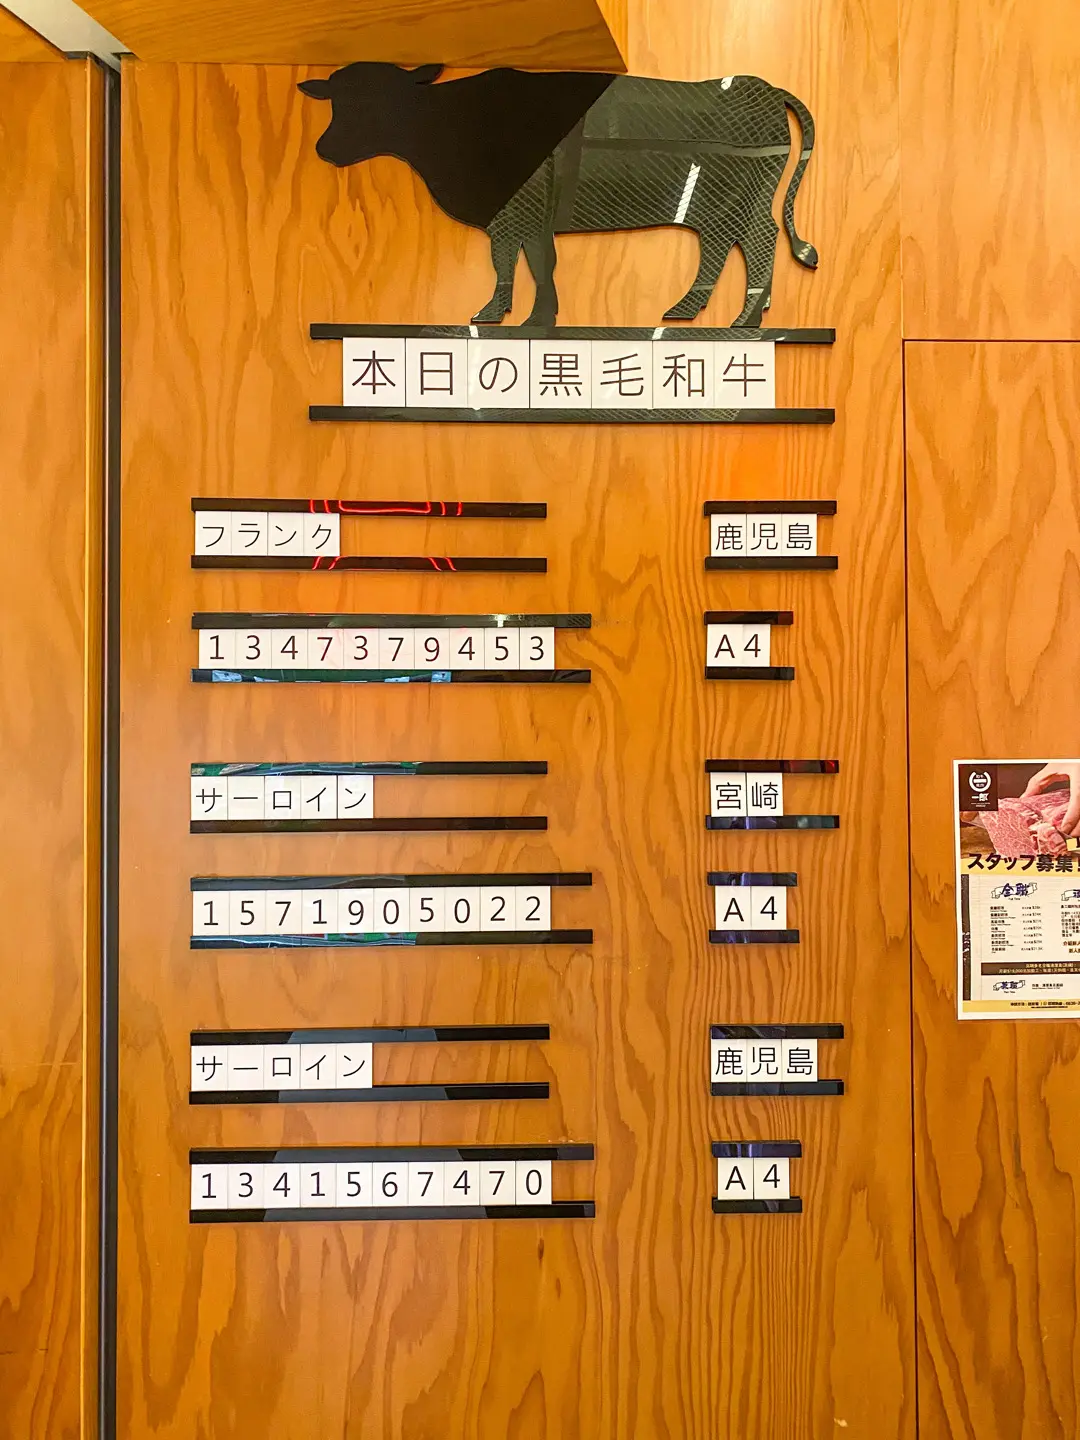 本日の黒毛和牛
フランク 鹿児島
1347379453 A4
サーロイン 宮崎
1571905022 A4
サーロイン 鹿児島
1341567470 A4
スタッフ募集!
全職